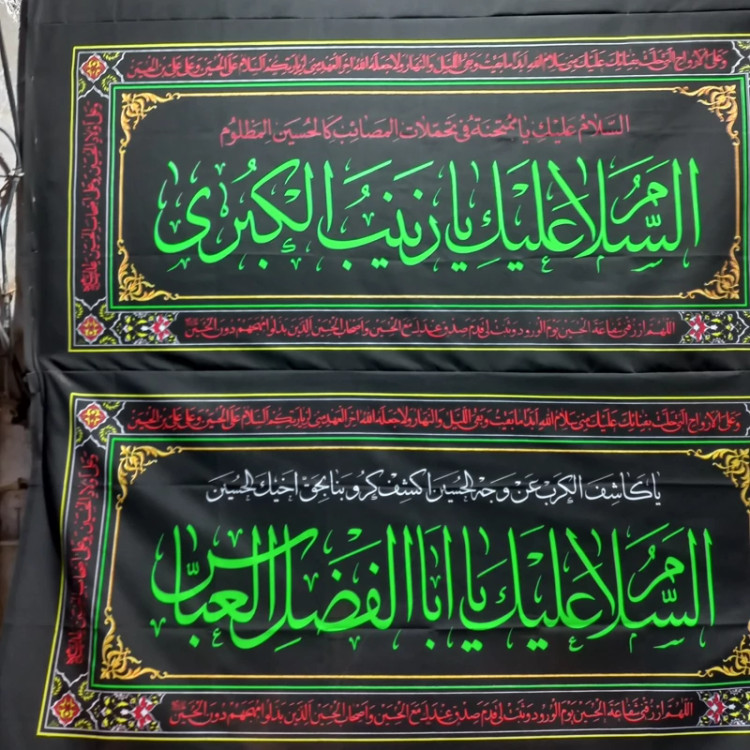 وعلى الارواح التي حلت بفنائك عليك مني سلام الله ابدا ما بقيت وبقي الليل والنهار ولا جعله الله اخر العهد مني لزيارتكم السلام على الحسين وعلى علي بن الحسين
وعلى اولاد الحسين وعلى اصحاب الحسين
السلام عليك يا ممتحنة في تحملات المصائب كالحسين المظلوم
السلام عليك يا زينب الكبرى
اللهم ارزقني شفاعة الحسين يوم الورود وثبت لي قدم صدق عندك مع الحسين واصحاب الحسين الذين بذلوا مهجهم دون الحسين
وعلى الارواح التي حلت بفنائك عليك مني سلام الله ابدا ما بقيت وبقي الليل والنهار ولا جعله الله اخر العهد مني لزيارتكم السلام على الحسين وعلى علي بن الحسين
وعلى اولاد الحسين وعلى اصحاب الحسين
يا كاشف الكرب عن وجه الحسين اكشف كروبنا بحق اخيك الحسين
السلام عليك يا ابا الفضل العباس
اللهم ارزقني شفاعة الحسين يوم الورود وثبت لي قدم صدق عندك مع الحسين واصحاب الحسين الذين بذلوا مهجهم دون الحسين